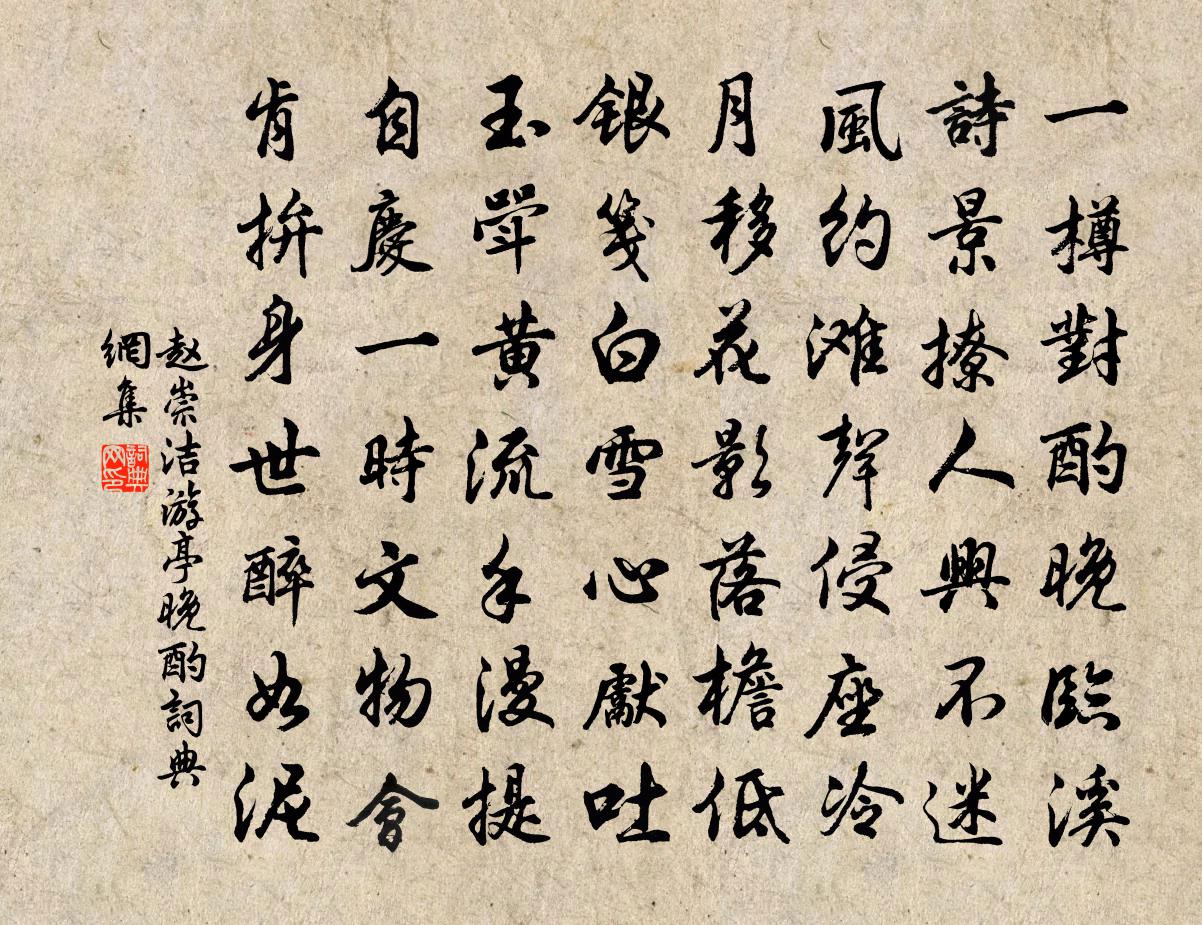 一樽對酌晚臨溪
詩景撩人興不迷
風約滩聲侵座冷
月移花影落檐低
銀箋白雪心獻吐
玉斝黄流手漫提
自慶一時文物會
肯拚身世醉如泥
赵崇洁游亭晚酌詞典
網集
詞典
网印